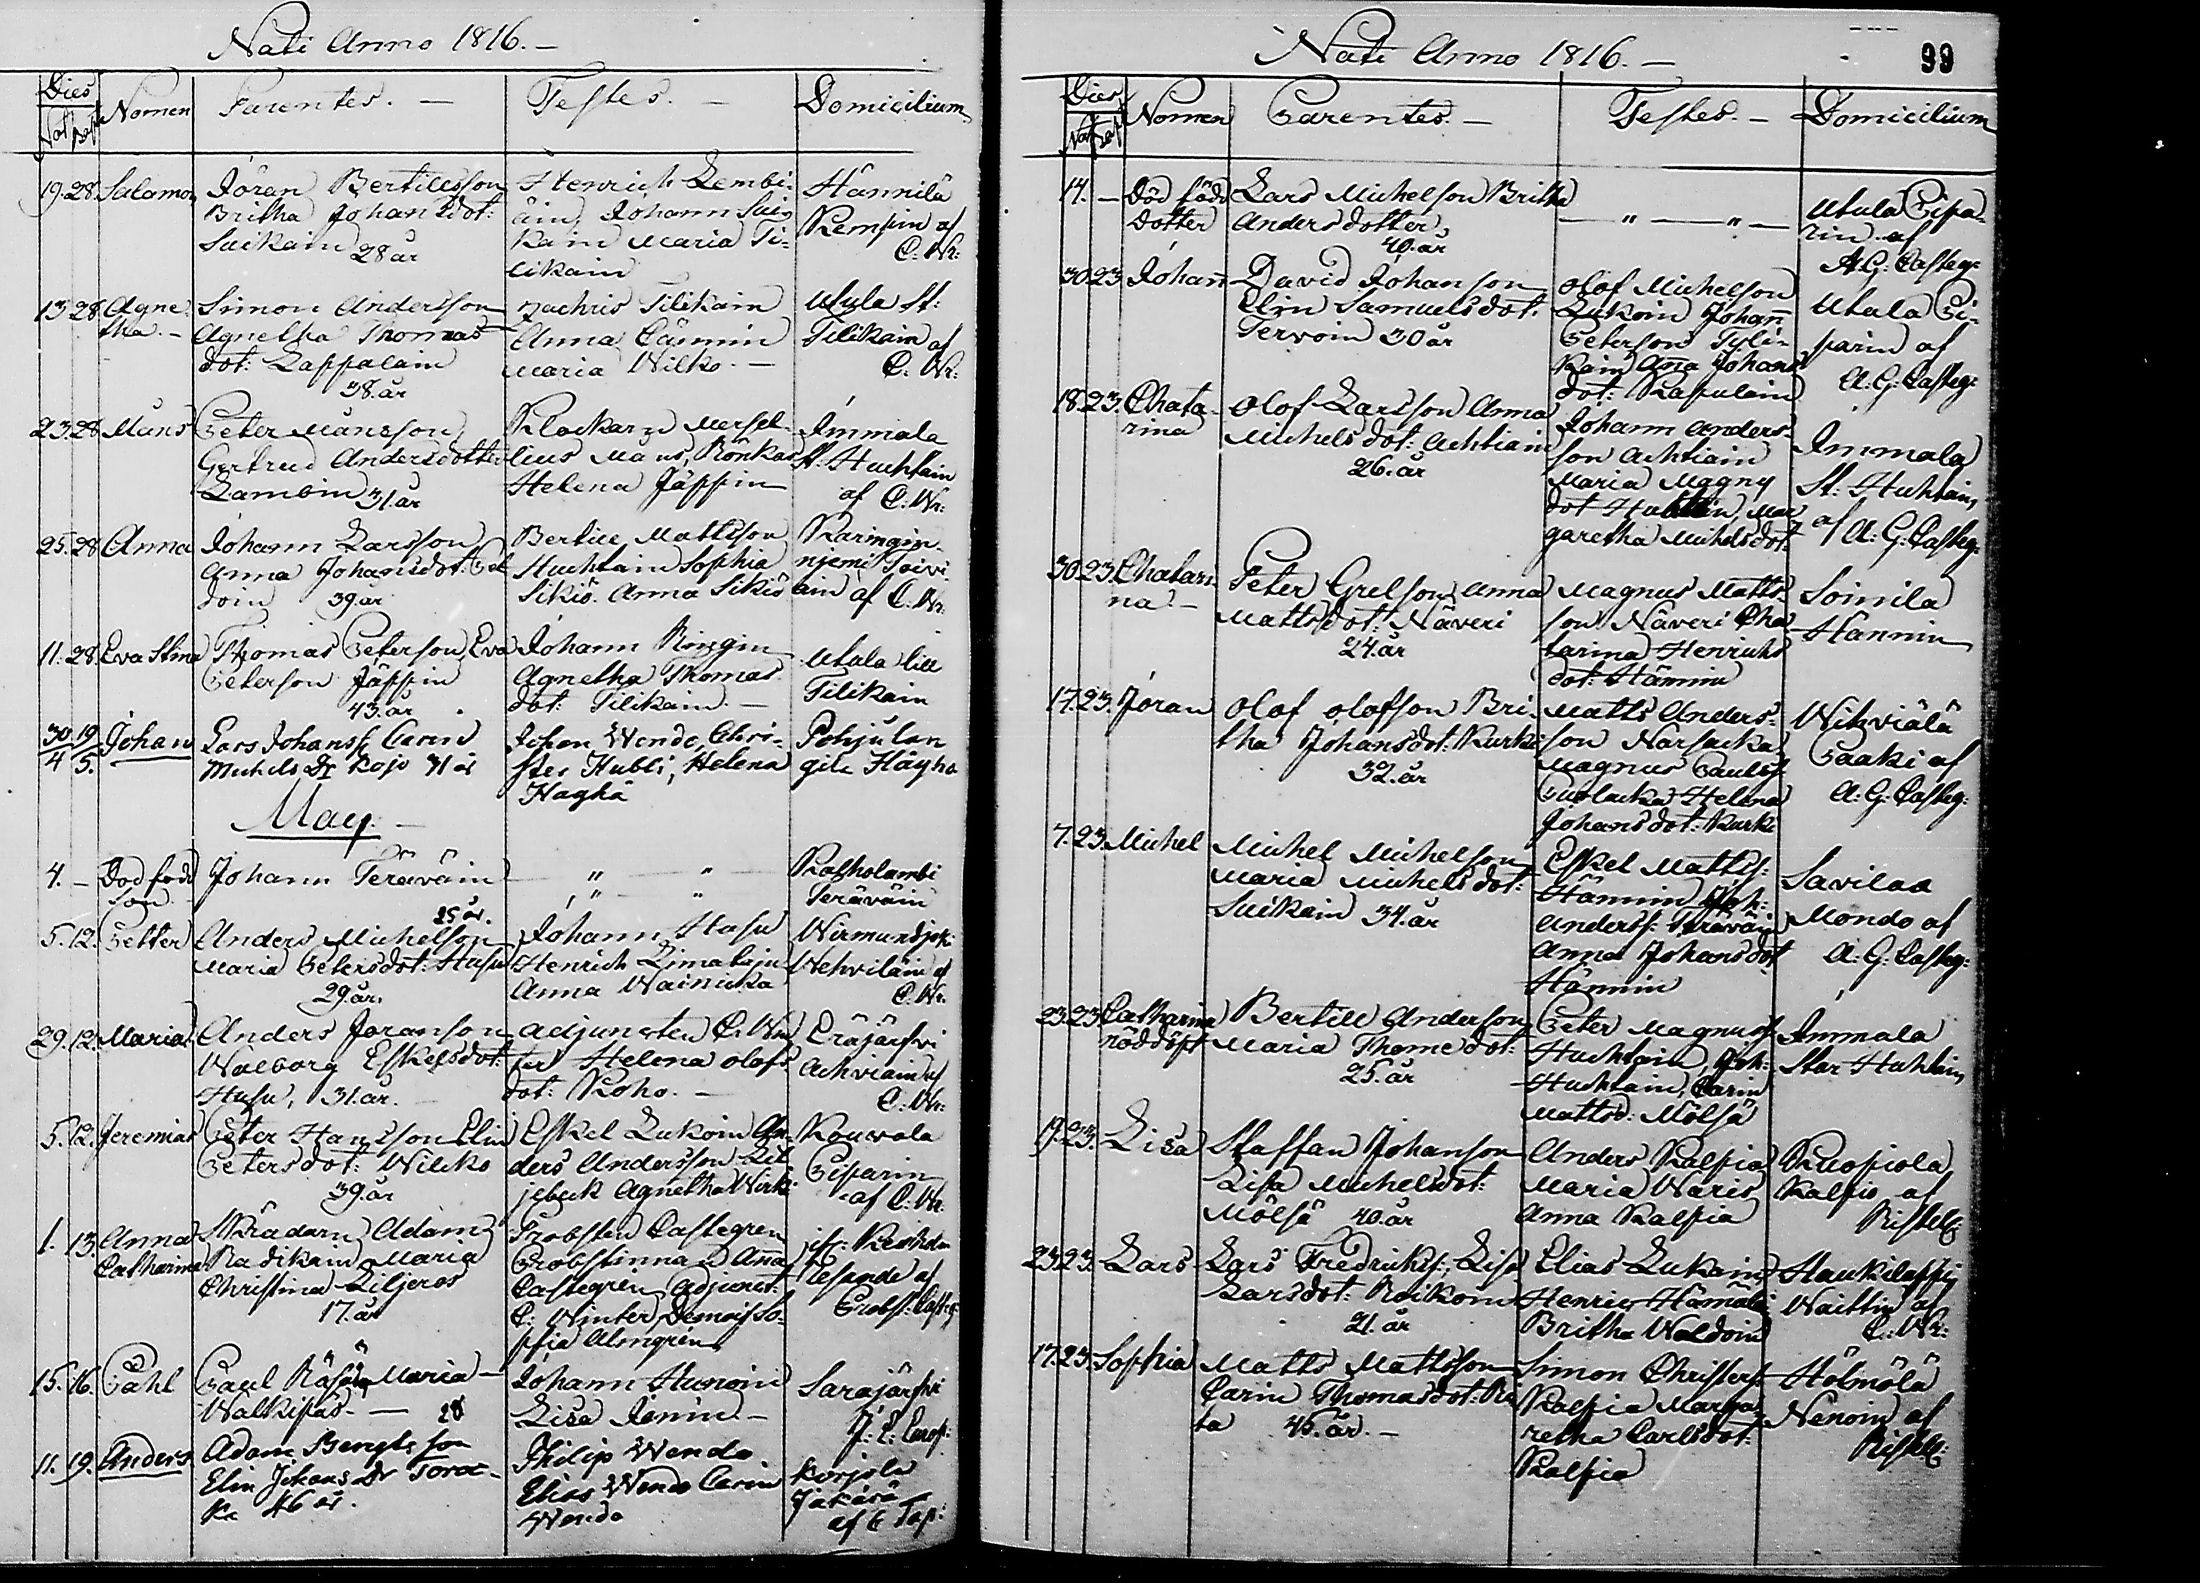 Nati Anno 1816.
Dies
Nat Bapt
Nomen
Parentes.
Testes.
Domicilium
19. 28. Salamon
Jöran Bertillsson
Britha Johansdot:
Suikain 28 år
Henrich Lembi-
äin, Johann Sui-
kain Maria Ti-
likain
Hännilä
Rempin af
C: Wr:
13. 28. Agne-
tha
Simon Andersson
Agnetha Thomas
dot: Lappalain
38. år
Zachris Tilikain
Anna Tännin
Maria Wilko
Utula St:
Tilikain af
C: Wr:
23. 28. Måns
Peter Månsson
Gertrud Andersdotter
Lambin 31. år
Klockarn Mersel-
lius Måns Rönkas
Helena Jäppin
Jmmala
St: Huchtain
af C: Wr:
25. 28. Anna
Johann Larsson
Anna Johansdot: Pel
doin 39. år
Bertill Mattsson
Huchtain Sophia
Sikiö. Anna Sikiö
Karingin-
njemi Toivi-
ain af C: Wr:
11. 28. Eva Stina
Thomas Peterson Eva
Peterson Jäppin
43. år
Johann Ringin
Agnetha Thomas
dot: Tilikain
Utula lill
Tilikain
30/4 19/5. Johan
Lars Johanss Carin
Michels Dr Kojo 41 år
Johan Wendo, Chri-
ster Hubli, Helena
Haÿhä
Pohjulan
gile Häyhä
Maij.
4. - Död född
Son
Johann Teräväin
25 år.
" "
" "
Kolholambi
Teräväin
5. 12. Petter
Anders Michelson
Maria Petersdot: Husu
29. år.
Johann Husu
Henrich Limalaju
Anna Wainicka
Wirmundjoki
Wehviläin af
C: Wr.
29. 12. Maria
Anders Joranson
Walborg Eskelsdot:
Husu, 31. år.
Adjuncten C. Win
ter Helena Olofs
dot: Roho.
Eräjärfvi
Achviain af
C: Wr:
5. 12. Jeremias
Peter Hansson Elin
Petersdot: Wilcko
39. år
Eskel Lukoin An-
ders Andersson Lil
jebeck Agnetha Wirki
Kouwola
Piparin
af C: Wr
1. 13. Anna
Catharina
Skrädarn Adam
Radikain Maria
Christina Liljeros
17. år
Probsten Castegren
Probstinnan Anna
Castegren Adjunct:
C: Winter Demois: So-
phia Almgren
resande af
Probst: Casteg:
15. 16. Påhl
Paul Räsäin Maria
Walkipää 28
Johann Hunoin
Lisa Jänin
Sarajärfvi
J: E: Europ:
11. 19. Anders
Adam Bengtsson
Elin Johans Dr Torac-
ka 46 år.
Philip Wendo
Elias Wendo Carin
Wendo
Korjola
Jakärä
af E Top:
Nati Anno 1816.
99
Dies
Nat Bapt
Nomen
Parentes.
Testes.
Domicilium
14. - Död född
dotter
Lars Michelson Britha
Andersdotter
40. år
" "
Utula Pipa-
rin af
A: G: Casteg:
30. 23. Johann
David Johanson
Elin Samuelsdot:
Tervoin 30 år
Olof Michelson
Lukoin Johann
Peterson Tyli-
kain Anna Johans
dot: Kapulain
Utula Pi-
parin af
A: G: Casteg:
18. 23. Chata-
rina
Olof Larsson Anna
Michelsdot: Achtiain
26. år
Johann Anders-
son Achtiain
Maria Magny
dot Huchtain, Mar
garetha Michelsdot:
Jmmala
St: Huhtain
af A: G: Casteg:
30. 23. Chatari
na
Peter Grelson Anna
Mattsdot: Näveri
24. år
Magnus Matts-
son Näveri Cha
tarina Henrichs
dot: Hännin
Soinila
Hännin
17. 23. Jöran
Olof Olofson Bri-
tha Johansdot: Kurki
32. år
Matts Anders-
son Narsacka
Magnus Paulss:
Puolacka Helena
Johansdot: Kurki
Wihviälä
Paaki af
A: G: Casteg:
7. 23. Michel
Michel Michelson
Maria Michelsdot:
Suikain 34. år
Eskel Mattss:
Hännin Joh:
Anderss: Teräväin
Anna Johansdot
Hännin
Savilaa
Mondo af
A: G: Casteg:
23. 23. Catharina
nöddöpt
Bertill Anderson
Maria Thomedot:
25. år
Peter Magnuss:
Huchtain, Joh:
Huchtain, Carin
Mattsd: Mölsä
Jmmala
Stor Huhtain
17. 23. Lisa
Staffan Johanson
Lisa Michelsdot:
Mölsä 40. år
Anders Kalpia
Maria Waris
Anna Kalpia
Kuopiola
Kalpio af
Ristell:
23. 23. Lars
Lars Fredrickss: Lisa
Larsdot: Roikoin
21. år
Elias Lukain
Henric Hämäläi
Britha Waldoin
Haukilappi
Waittin af
C: Wr:
17. 23. Sophia
Matts Mattsson
Carin Thomasdot: Ri
ta 45. år.
Simon Christerss
Kalpia Marga-
retha Carlsdot:
Kalpia
Hölmölä
Nenoin af
Ristell: